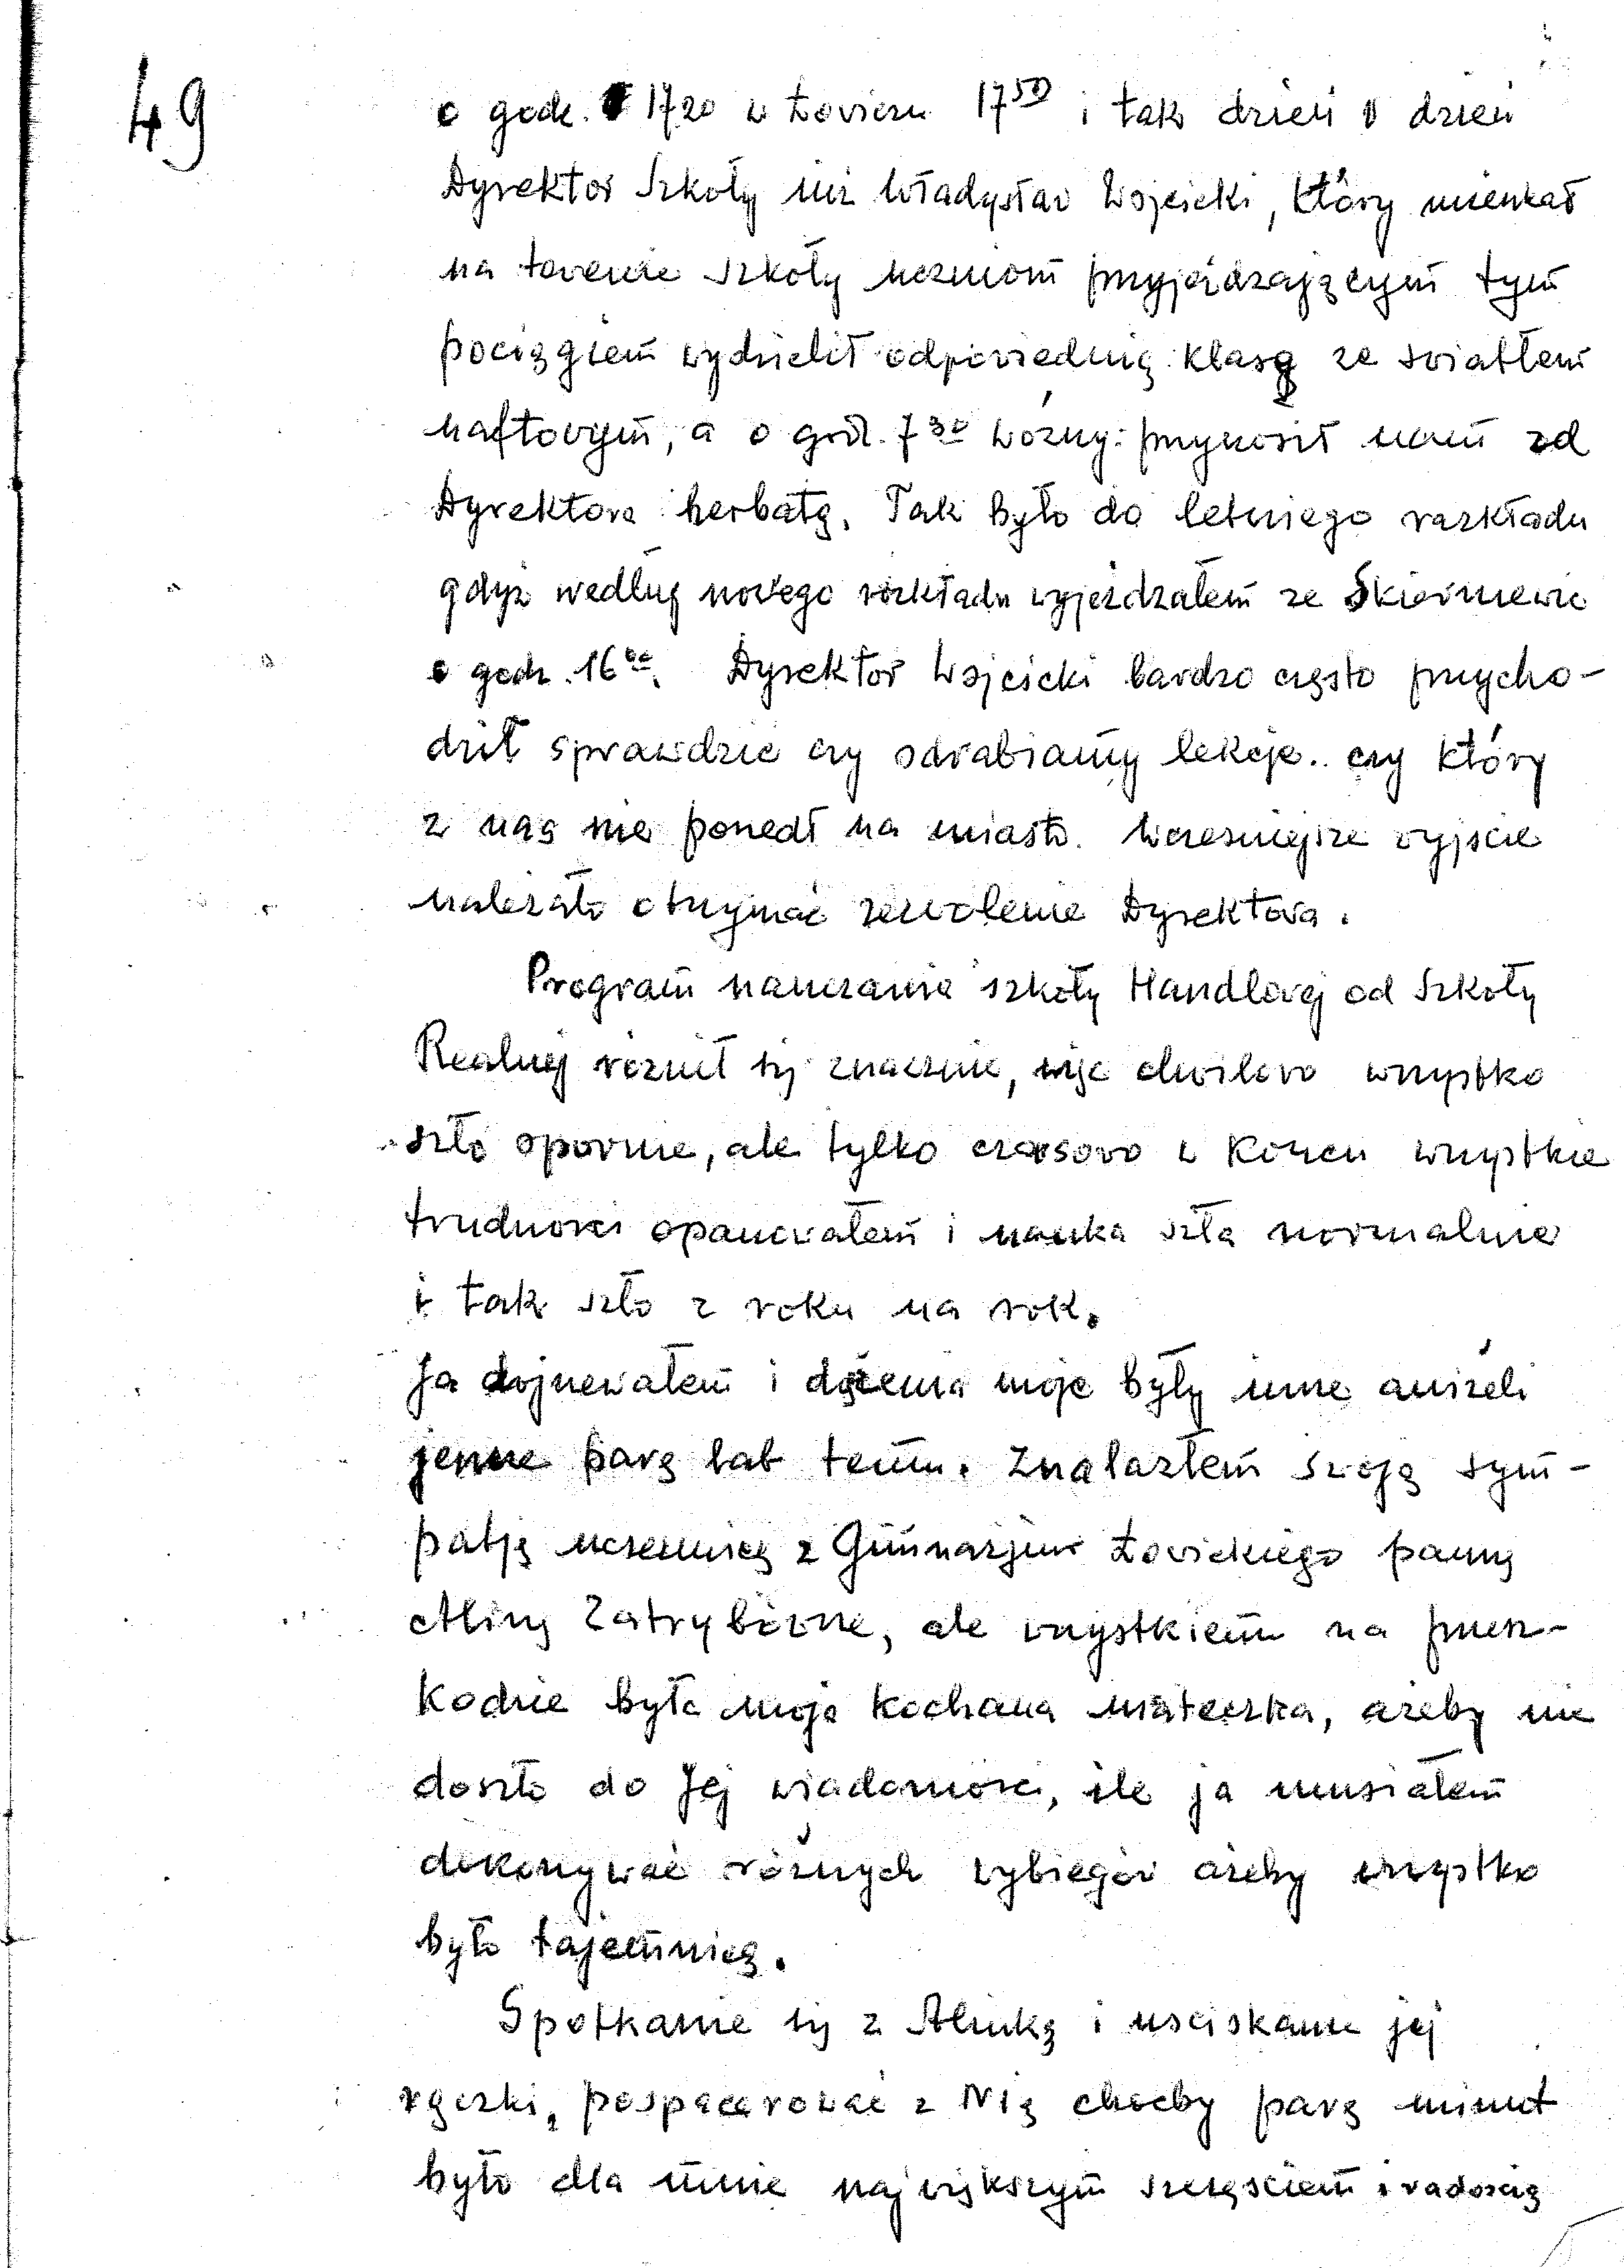 49
o godz. 17 20 w Łowiczu 17 50 i tak dzień w dzień
Dyrektor Szkoły inż Władysław Wojcicki, który mieszkał
na terenie szkoły uczniom przyjeżdzającym tym
pociągiem wydzielił odpowiednią klasę ze swiatłem
naftowym, a o god. 7 30 woźny przynosił nam od
Dyrektora herbatę. Tak było do letniego rozkładu
gdyż według nowego rozkładu wyjeżdzałem ze Skierniewic
o godz. 16 00. Dyrektor Wojcicki bardzo często przycho-
dził sprawdzić czy odrabiamy lekcje.. czy który
z nas nie poszedł na miasto. Wczesniejsze wyjscie
należało otrzymać zezwolenie Dyrektora.
Program nauczania szkoły Handlowej od Szkoły
Realnej róznił się znacznie, więc chwilowo wszystko
szło opornie, ale tylko czasowo w koncu wszystkie
trudnosci opanowałem i nauka szła normalnie
i tak szło z roku na rok.
Ja dojrzewałem i dążenia moje były inne aniżeli
jeszcze parę lat temu. Znalazłem swoją sym-
patję uczennicę z Gimnazjum Łowickiego pannę
Alinę, ale wszystkiem na przesz-
kodzie była moja kochana mateczka, ażeby nie
doszło do Jej wiadomosci, ile ja musiałem
dokonywać różnych wybiegów ażeby wszystko
było tajemnicą.
Spotkanie się z Alinką i usciskanie jej
rączki, pospacerować z Nią choćby parę minut
było dla mnie największym szczęsciem i radoscią